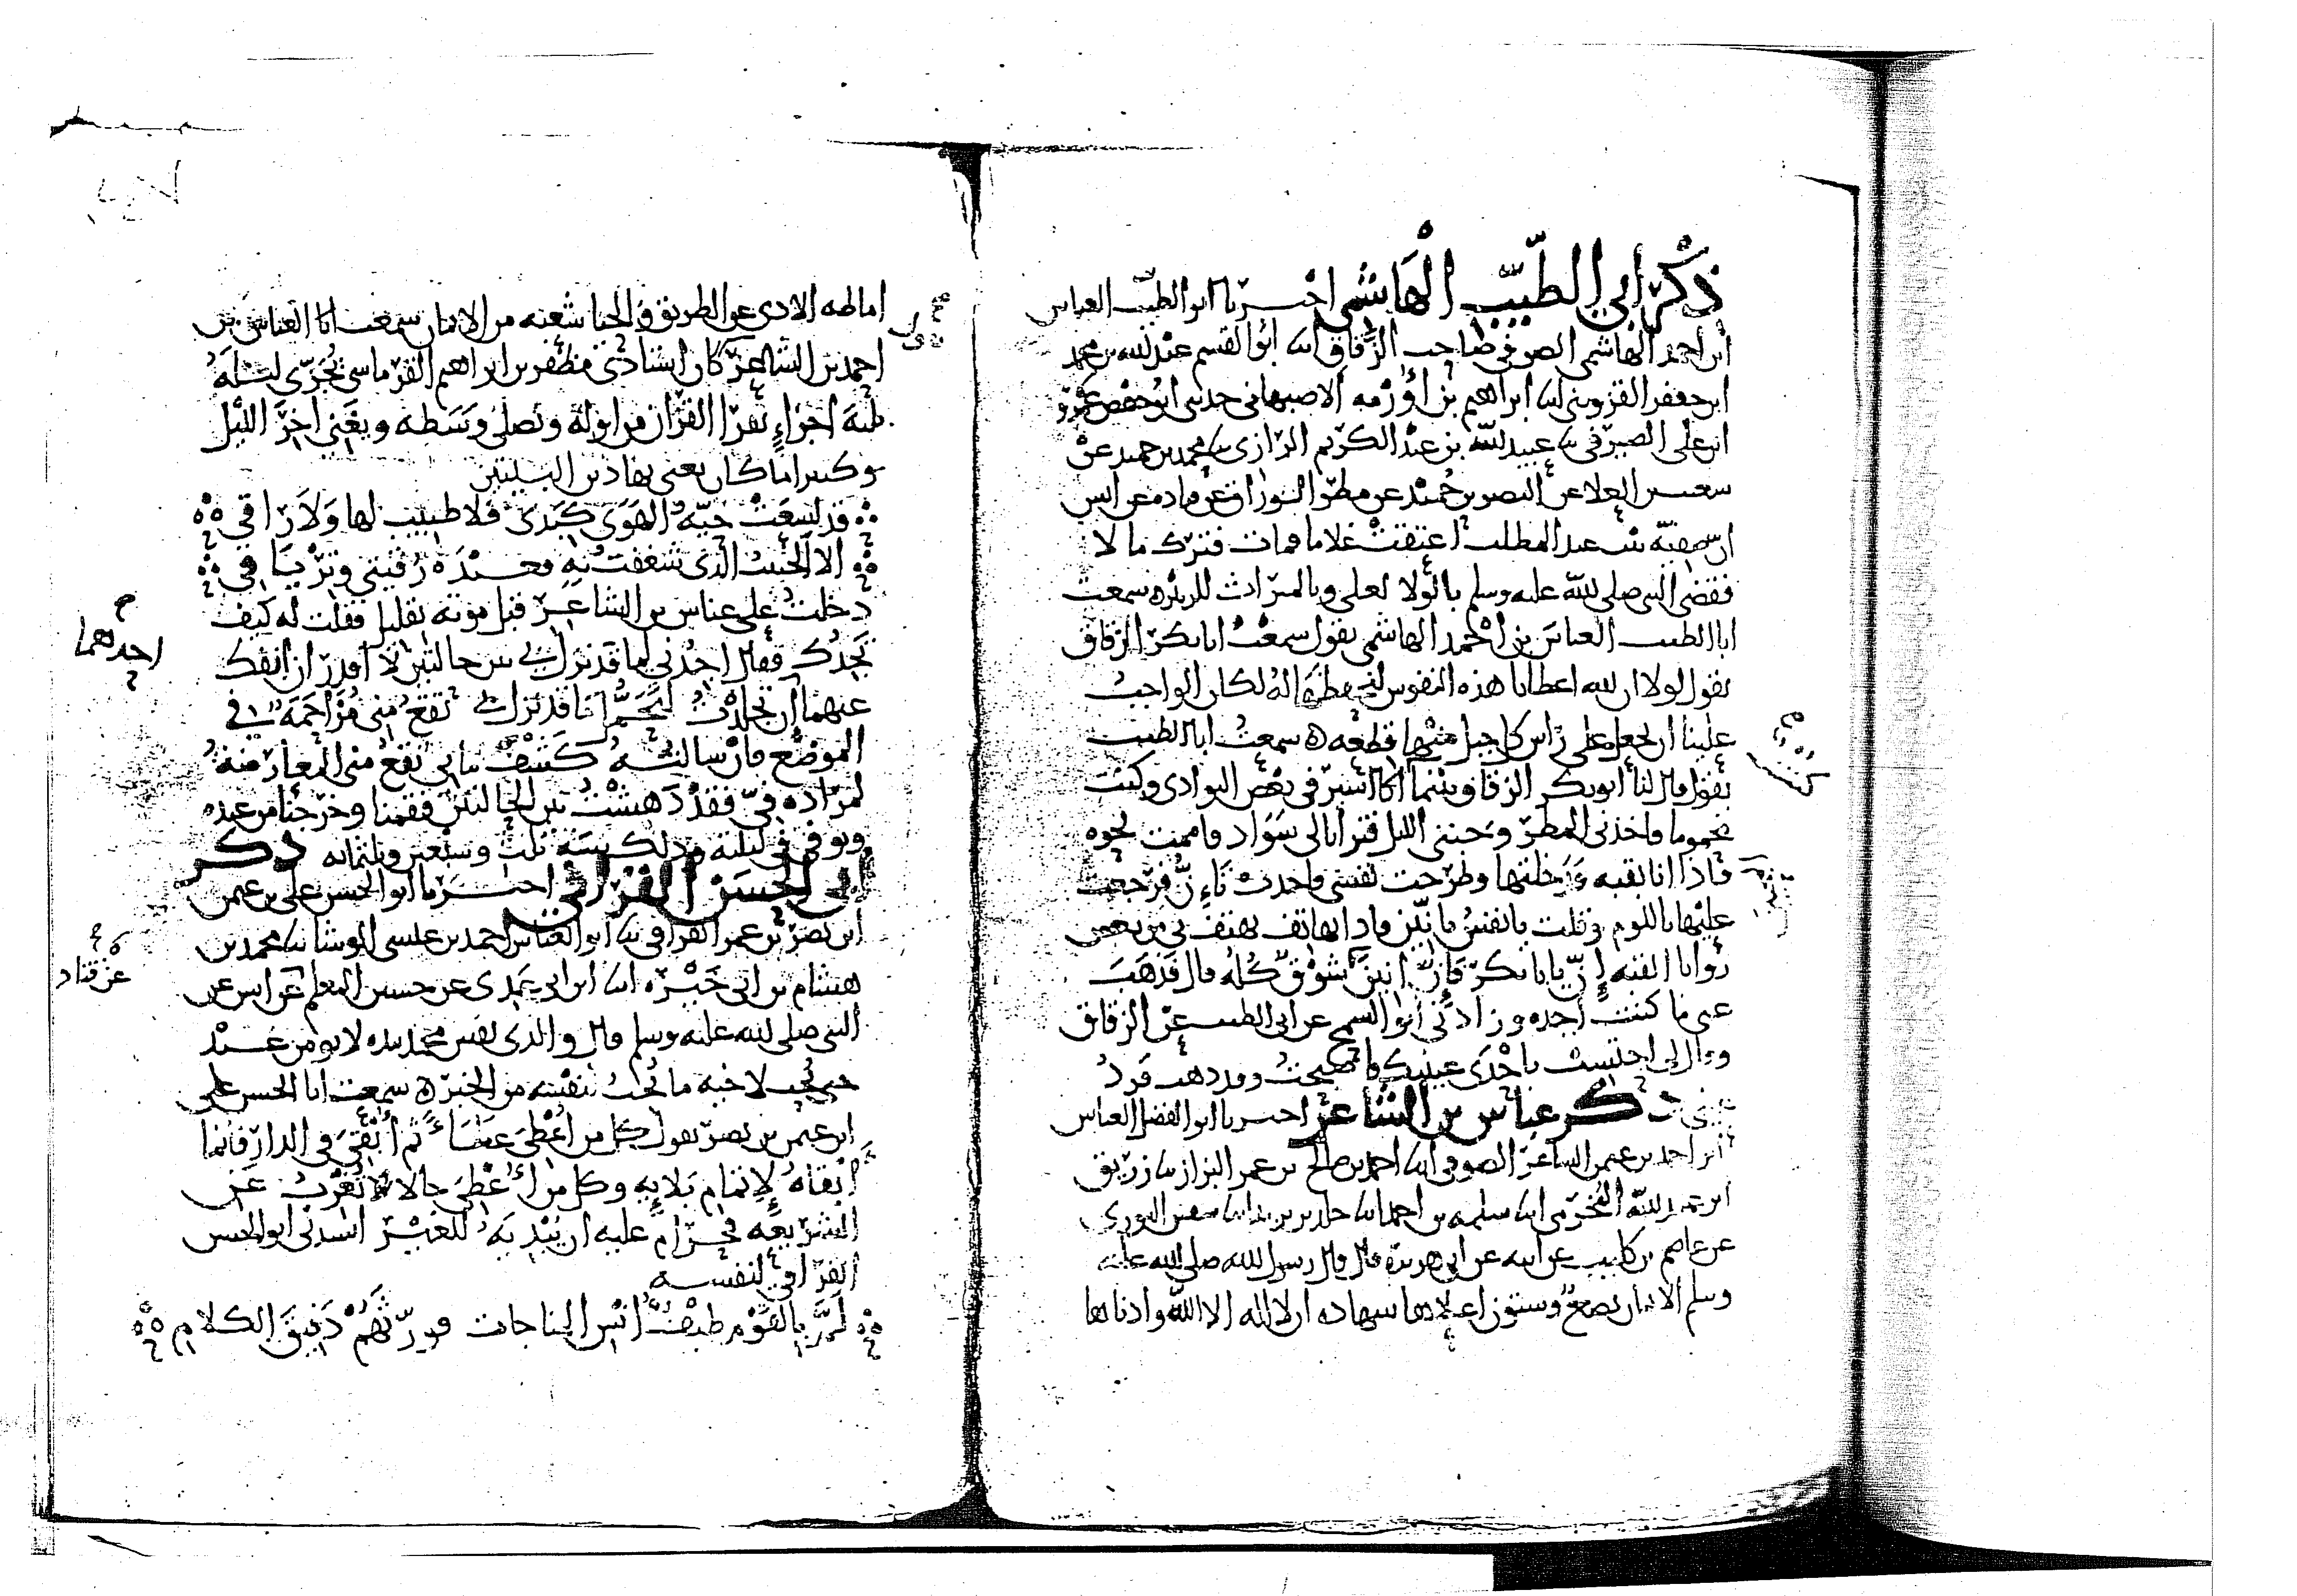 ذكر ابي الطيب الهاشمي اخبرنا ابو الطيب العباس
ابن احمد الهاشمي الصوفي صاحب الزقاق ابو القسم عبد الله بن محمد
ابن جعفر القزويني ابراهيم بن اورمه الاصبهاني حدثني ابو حفص عمرو
ابن علي الصيرفي عبيد الله بن عبد الكريم الرازي محمد بن حميد عن
العلا عن النضر بن حميد عن مطر الوراق عن قتادة عن انس
ان صفية بنت عبد المطلب اعتقت غلاما فمات فترك مالا
فقضى النبي صلى الله عليه وسلم بالولا لعلي وبالميراث للزبير سمعت
ابا الطيب العباس بن احمد الهاشمي يقول سمعت ابا بكر الزقاق
يقول لولا ان الله اعطانا هذه النفوس لنحفظها له لكان الواجب
علينا ان نجعل على راس كل جبل منها قطعه سمعت ابا الطيب
يقول قال لنا ابو بكر الزقاق بينما انا اسير في بعض البوادي وكنت
محموما فاخذني المطر وجنني الليل فترايا لي سواد فاممت نحوه
فاذا انا بقبه فدخلتها وطرحت نفسي فاخذت تاءن فرجعت
عليها باللوم وقلت يا نفس ما تئين فاذا بهاتف يهتف بي من بعض
زوايا القبه إن يا با بكر فإن انين شوق كله قال فذهب
عني ما كنت اجده وزادني ابو السمح عن ابي الطيب عن الزقاق
وقال لي احتبست باحدى عينيك فاصبحت وقد ذهب فرد
عيني ذكر عباس بن الشاعر اخبرنا ابو الفضل العباس
ابن احمد بن عمر الشاعر الصوفي احمد بن صالح بن عمر البزاز زريق
ابن عبد الله المخرمي سلمه بن احمد خلد بن يزيد سفين الثوري
عن عاصم بن كليب عن ابيه عن ابي هريرة قال قال رسول الله صلى الله عليه
وسلم الايمان بضع وستون اعلاها شهاده ان لا اله الا الله وادناها
اماطه الاذى عن الطريق والحيا شعبه من الايمان سمعت ابا العباس بن
احمد بن الشاعر كان استاذي مظفر بن ابراهيم القرماسي يجزى ليله
ثلثه اجزاء يقرا القران من اوله ويصلي وسطه ويغني اخر الليل
وكثيرا ما كان يغني بهاذين البيتين
قد لسعت حية الهوى كبدي فلا طبيب لها ولا راقي
الا الحبيب الذي شغفت به فعنده رقيتي وترياقي
دخلت على عباس بن الشاعر قبل موته بقليل فقلت له كيف
تجدك فقال اجدني لما قد نزل بي بين حالتين لا اقدر ان انفك
عنهما ان تجلدت لتحمل ما قد نزل بي تقع مني مزاحمه في
الموضع وان سالته كشف ما بي تقع مني المعارضة
لمراده في فقد دهشت بين الحالتين فقمنا وخرجنا من عنده
وتوفي في ليلته وذلك سنة ثلث وسبعين وثلثمائه ذكر
ابي الحسن الفرافي اخبرنا ابو الحسن علي بن عمر
ابن نصر بن عمر الفرافي ابو العباس احمد بن عيسى الوشا محمد بن
هشام بن ابي خيره ابن ابي عدي عن حسين المعلم عن انس عن
النبي صلى الله عليه وسلم قال والذي نفس محمد بيده لا يومن عبد
حتى يحب لاخيه ما يحب لنفسه من الخير سمعت ابا الحسن علي
ابن عمر بن نصر يقول كل من اعطى عطاء ثم ابقي في الدار فانما
ابقاه لاتمام بلايه وكل من اعطي حالا لا تغرب عن
الشريعه فحرام عليه ان يبديه للغير انشدني ابو الحسن
الفرافي لنفسه
لمر بالقوم طيف انس المناجات فورثهم دقيق الكلام
احدهما
عن قتاد